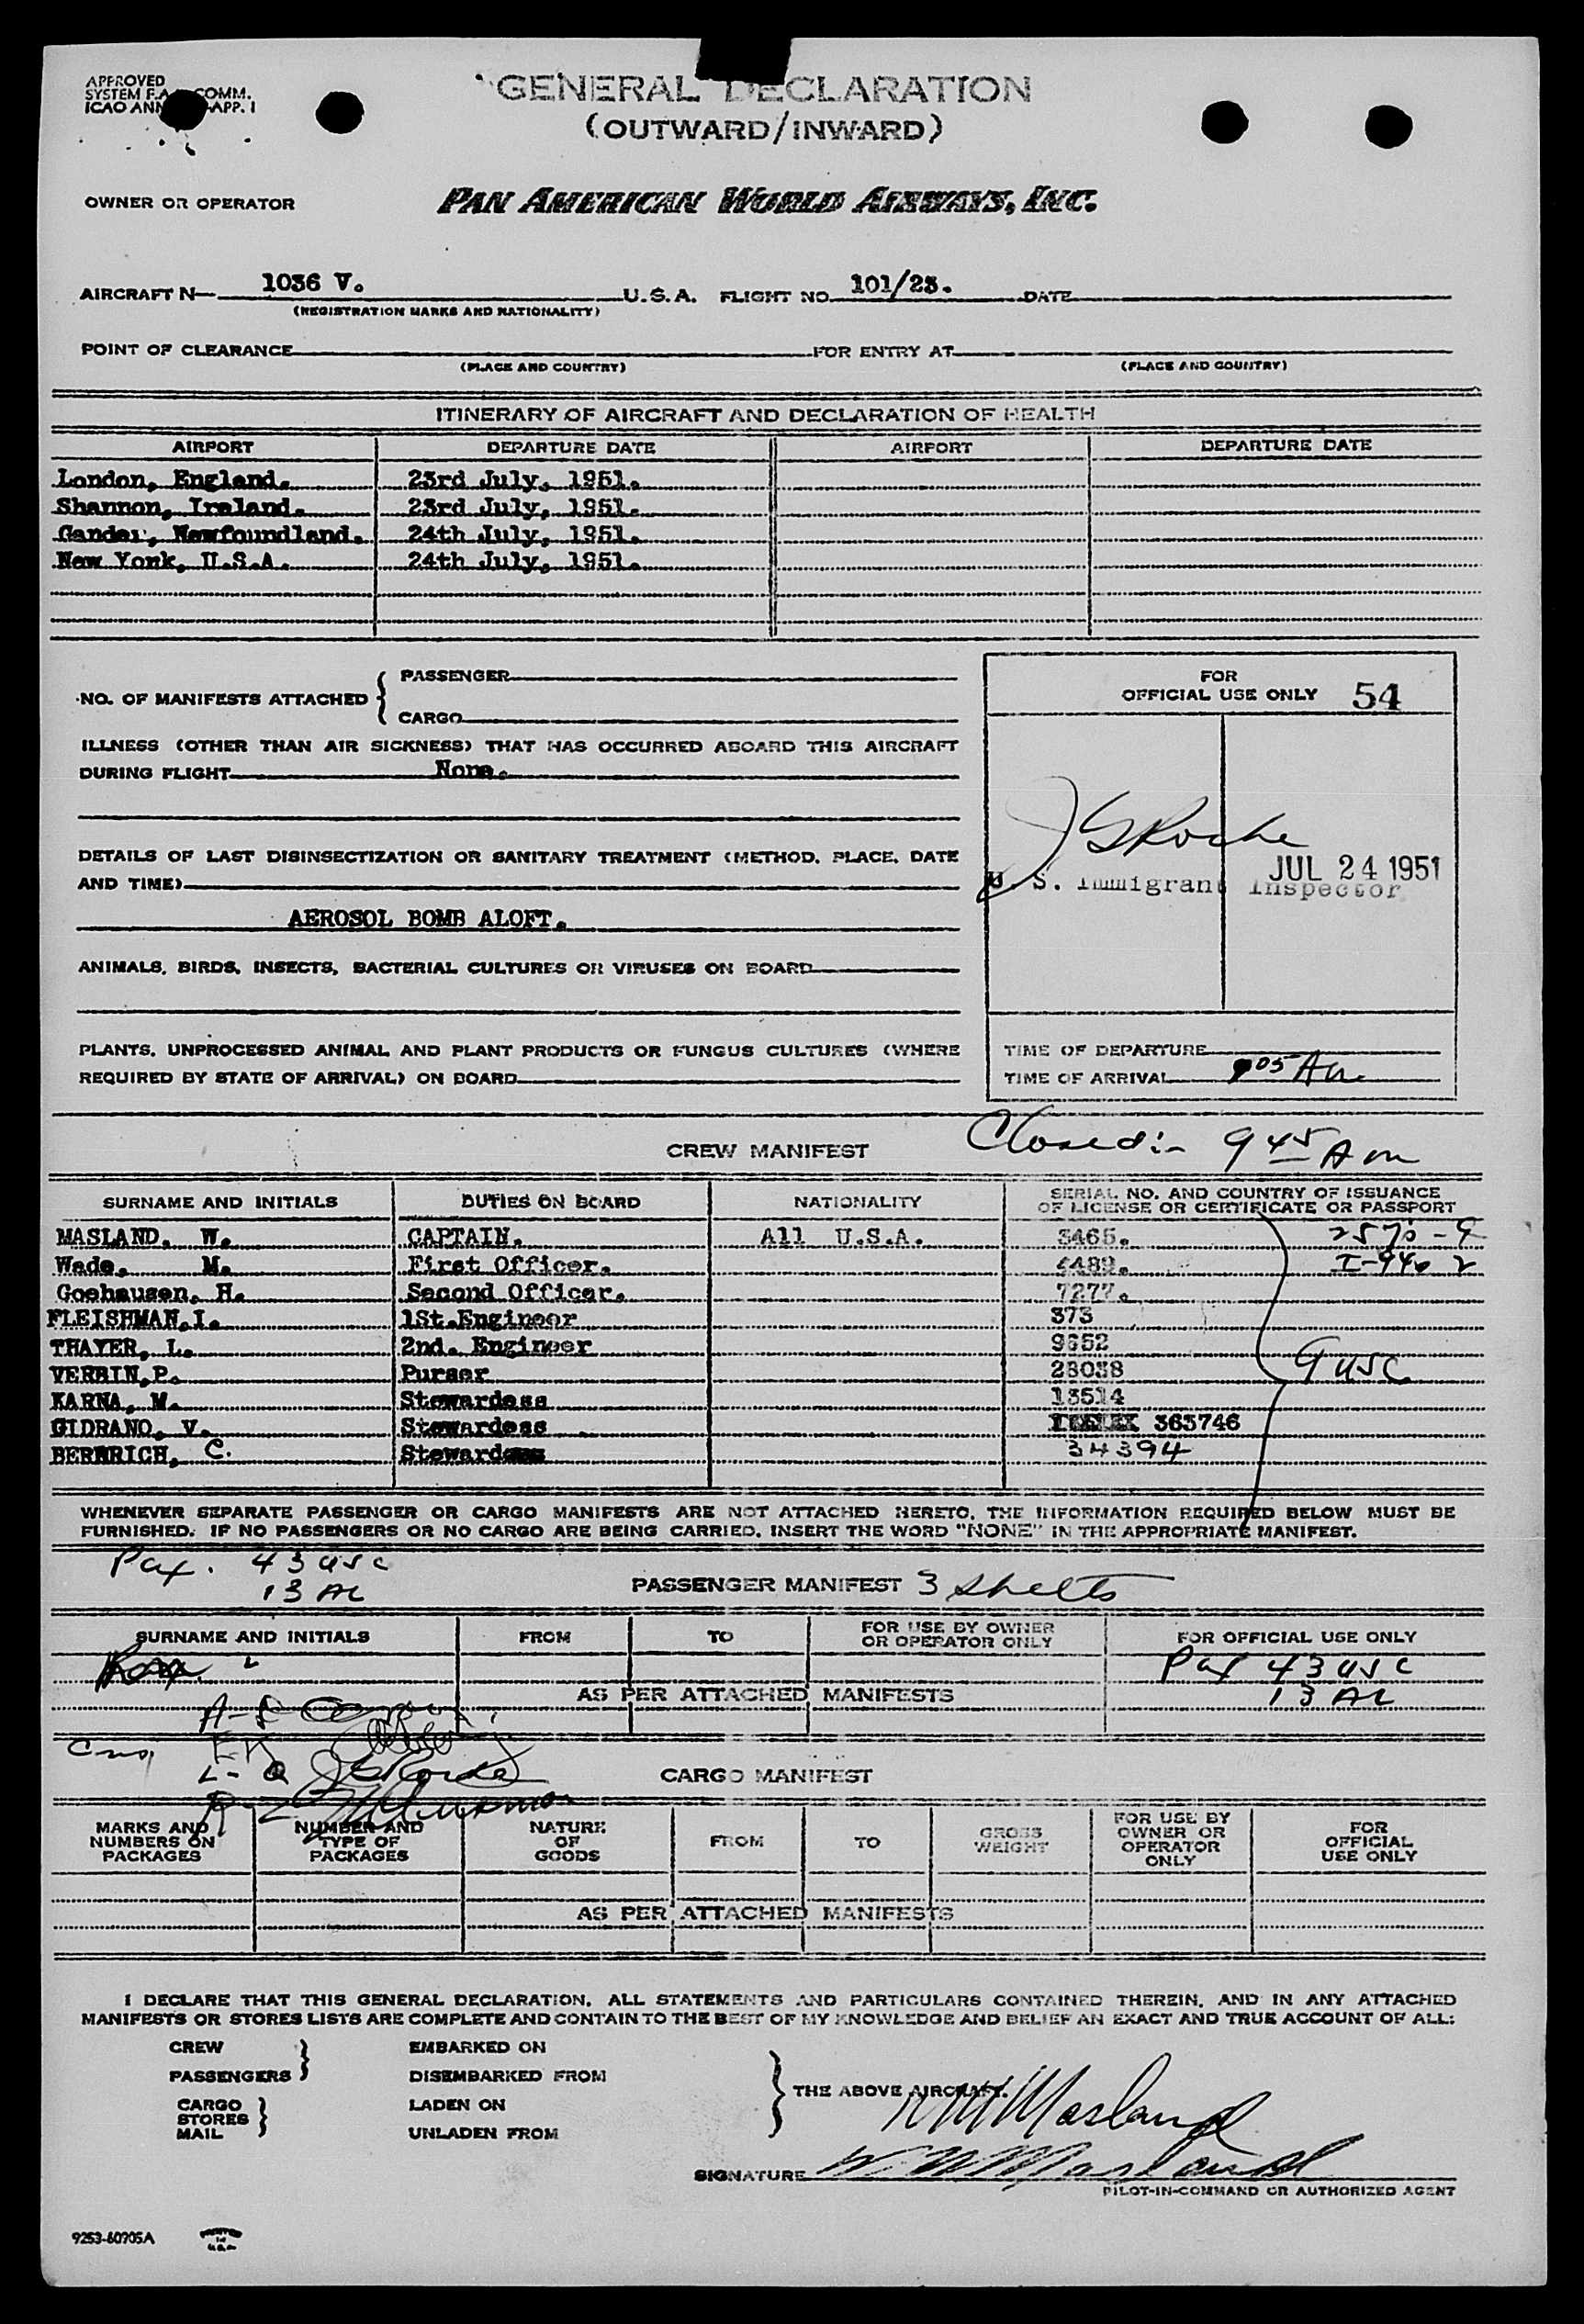 APPROVED
SYSTEM F.A. COMM.
ICAO ANN APP. I
GENERAL DECLARATION
(OUTWARD/INWARD)
OWNER OR OPERATOR PAN AMERICAN WORLD AIRWAYS, INC.
AIRCRAFT N— 1036 V. U.S.A. FLIGHT NO 101/23. DATE
(REGISTRATION MARKS AND NATIONALITY)
POINT OF CLEARANCE FOR ENTRY AT
(PLACE AND COUNTRY) (PLACE AND COUNTRY)
ITINERARY OF AIRCRAFT AND DECLARATION OF HEALTH
AIRPORT DEPARTURE DATE AIRPORT DEPARTURE DATE
London, England. 23rd July, 1951.
Shannon, Ireland. 23rd July, 1951.
Gander, Newfoundland. 24th July, 1951.
New York, U.S.A. 24th July, 1951.
NO. OF MANIFESTS ATTACHED { PASSENGER
CARGO
FOR
OFFICIAL USE ONLY 54
ILLNESS (OTHER THAN AIR SICKNESS) THAT HAS OCCURRED ABOARD THIS AIRCRAFT
DURING FLIGHT None.
DETAILS OF LAST DISINSECTIZATION OR SANITARY TREATMENT (METHOD, PLACE, DATE
AND TIME)
AEROSOL BOMB ALOFT.
JGRoche
JUL 24 1951
U. S. Immigrant Inspector
ANIMALS, BIRDS, INSECTS, BACTERIAL CULTURES OR VIRUSES ON BOARD
PLANTS, UNPROCESSED ANIMAL AND PLANT PRODUCTS OR FUNGUS CULTURES (WHERE
REQUIRED BY STATE OF ARRIVAL) ON BOARD
TIME OF DEPARTURE
TIME OF ARRIVAL 905 Am
Closed:- 945 Am
CREW MANIFEST
SURNAME AND INITIALS DUTIES ON BOARD NATIONALITY SERIAL NO. AND COUNTRY OF ISSUANCE
OF LICENSE OR CERTIFICATE OR PASSPORT
MASLAND. W. CAPTAIN. All U.S.A. 3465.
Wade. M. First Officer. 4489.
Goehausen, H. Second Officer. 7277.
FLEISHMAN,I. 1St.Engineer 373
THAYER, L. 2nd. Engineer 9652
VERBIN,P. Purser 28038 9 USC
KARNA, M. Stewardess 13514
GIDRANO, V. Stewardess 363746
BERNRICH, C. Steward 34394
WHENEVER SEPARATE PASSENGER OR CARGO MANIFESTS ARE NOT ATTACHED HERETO, THE INFORMATION REQUIRED BELOW MUST BE
FURNISHED. IF NO PASSENGERS OR NO CARGO ARE BEING CARRIED, INSERT THE WORD "NONE" IN THE APPROPRIATE MANIFEST.
Pax. 43 USC
13 AL
PASSENGER MANIFEST 3 sheets
SURNAME AND INITIALS FROM TO FOR USE BY OWNER
OR OPERATOR ONLY FOR OFFICIAL USE ONLY
Pax 43 USC
AS PER ATTACHED MANIFESTS 13 AL
CARGO MANIFEST
MARKS AND
NUMBERS ON
PACKAGES
NUMBER AND
TYPE OF
PACKAGES
NATURE
OF
GOODS
FROM
TO
GROSS
WEIGHT
FOR USE BY
OWNER OR
OPERATOR
ONLY
FOR
OFFICIAL
USE ONLY
AS PER ATTACHED MANIFESTS
I DECLARE THAT THIS GENERAL DECLARATION, ALL STATEMENTS AND PARTICULARS CONTAINED THEREIN, AND IN ANY ATTACHED
MANIFESTS OR STORES LISTS ARE COMPLETE AND CONTAIN TO THE BEST OF MY KNOWLEDGE AND BELIEF AN EXACT AND TRUE ACCOUNT OF ALL:
CREW EMBARKED ON
PASSENGERS DISEMBARKED FROM
THE ABOVE AIRCRAFT.
CARGO LADEN ON
STORES
MAIL UNLADEN FROM
W W Masland
SIGNATURE W. W Masland
PILOT-IN-COMMAND OR AUTHORIZED AGENT
9253-60705A